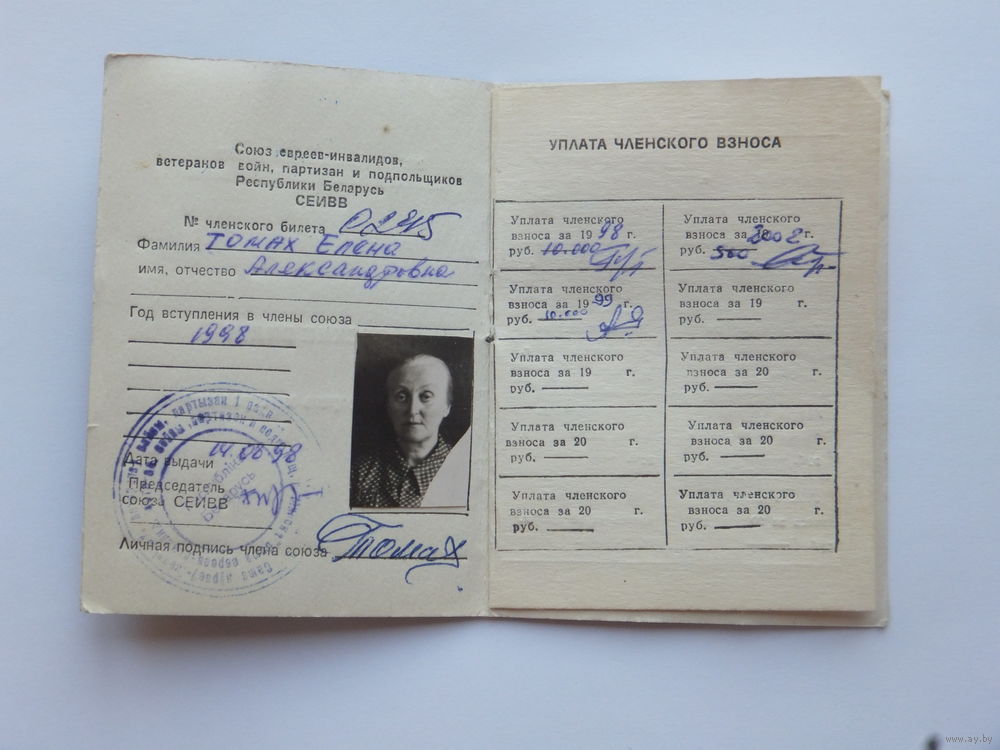 Союз евреев-инвалидов,
ветеранов войн, партизан и подпольщиков
Республики Беларусь
СЕИВВ
№ членского билета 0245
Фамилия Томах Елена
имя, отчество Александровна
Год вступления в члены союза
1998
Дата выдачи 14.06.98
Председатель
союза СЕИВВ
Личная подпись члена союза Томах
УПЛАТА ЧЛЕНСКОГО ВЗНОСА
Уплата членского
взноса за 1998 г.
руб. 10.000
Уплата членского
взноса за 1999 г.
руб. 10.000
Уплата членского
взноса за 19 г.
руб.
Уплата членского
взноса за 20 г.
руб.
Уплата членского
взноса за 20 г.
руб.
Уплата членского
взноса за 2002 г.
руб. 500
Уплата членского
взноса за 19 г.
руб.
Уплата членского
взноса за 20 г.
руб.
Уплата членского
взноса за 20 г.
руб.
Уплата членского
взноса за 20 г.
руб.
www.ay.by